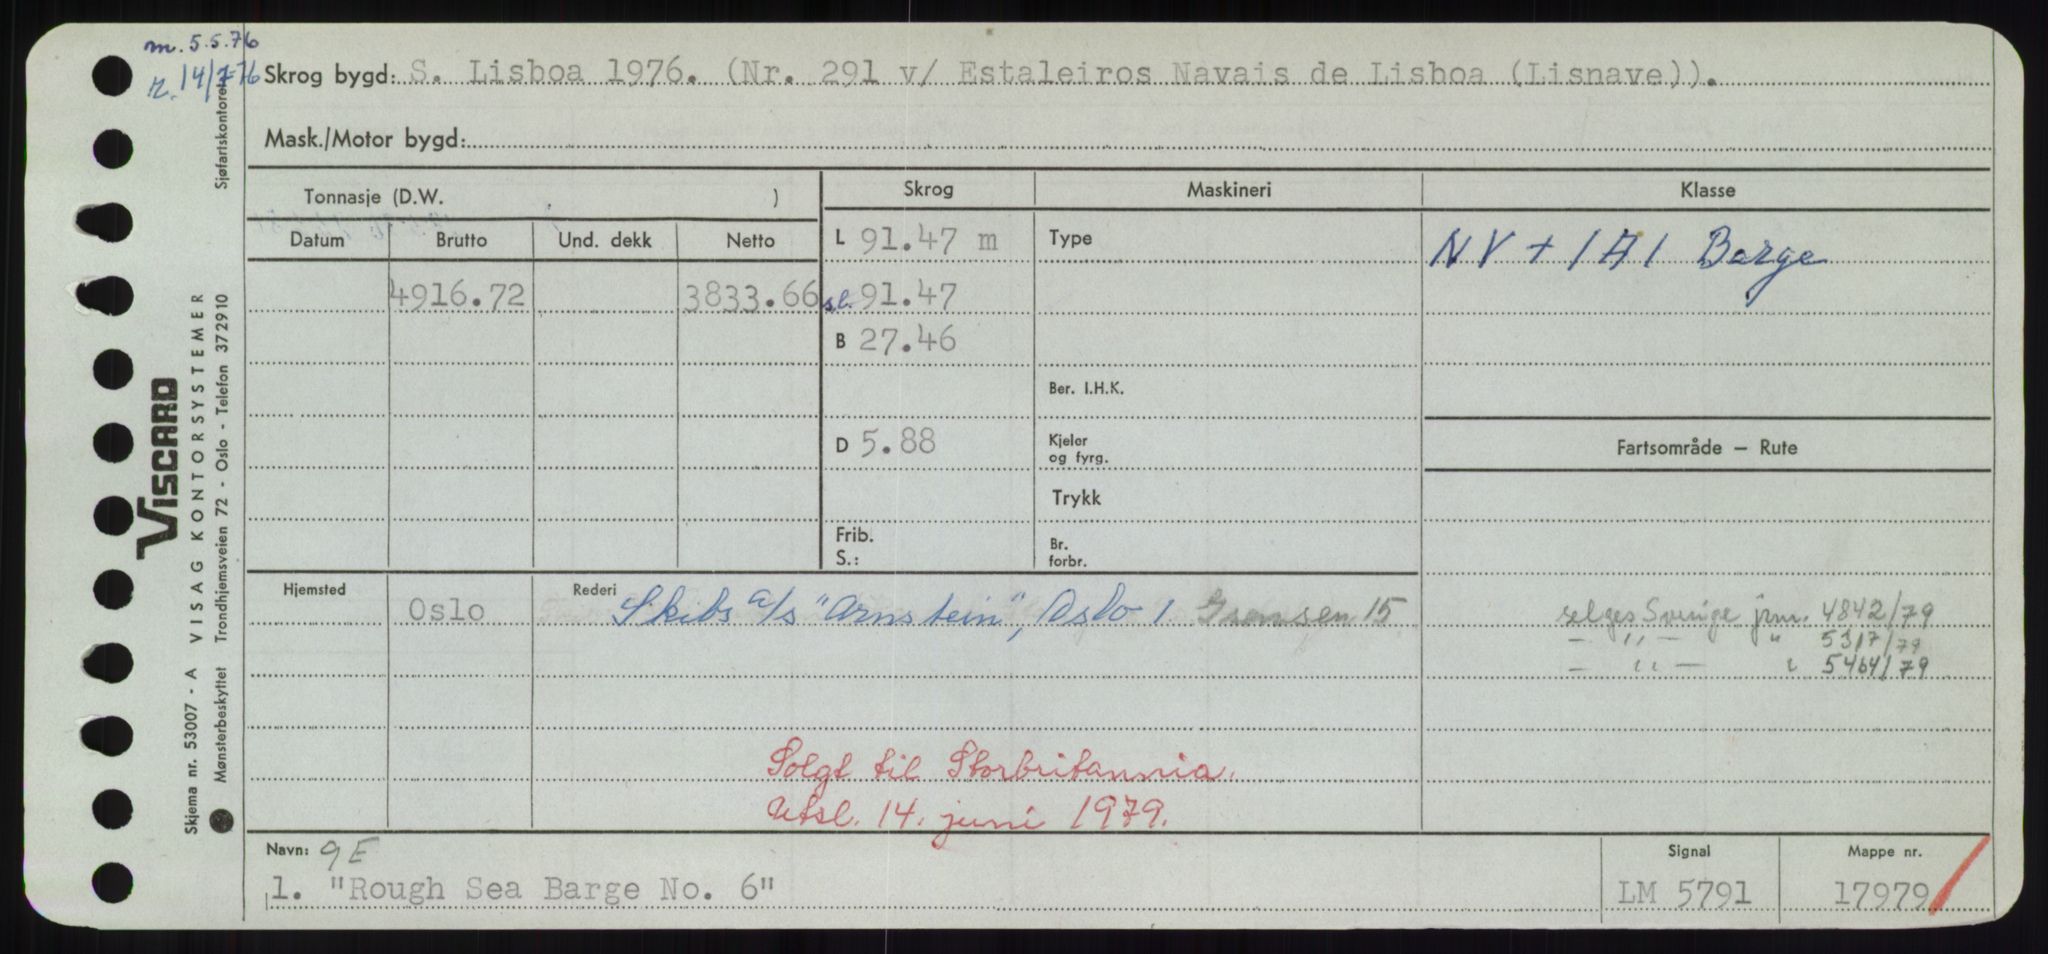 m. 5.5.76
r. 14/7-76
Skrog bygd: S. Lisboa 1976. (Nr. 291 v/ Estaleiros Navais de Lisboa (Lisnave)).
Mask./Motor bygd:
Tonnasje (D.W. ) Skrog Maskineri Klasse
Datum Brutto Und. dekk Netto L 91.47 m Type NV + 1A1 Barge
4916.72 3833.66 sl. 91.47
B 27.46
Ber. I.H.K.
D 5.88 Kjeler og fyrg. Fartsområde — Rute
Trykk
Frib.
S.:
Br. forbr.
Hjemsted Rederi
Oslo Skibs a/s "Arnstein", Oslo 1 Grensen 15
selges Sverige jrm. 4842/79
— " — " 5317/79
— " — " 5464/79
Solgt til Storbritannia.
Utsl. 14. juni 1979.
Navn: 9E Signal Mappe nr.
1. "Rough Sea Barge No. 6" LM 5791 17979
Sjøfartskontoret
VISCARD
VISAG KONTORSYSTEMER
Trondhjemsveien 72 - Oslo - Telefon 372910
Skjema nr. 53007 - A
Mønsterbeskyttet